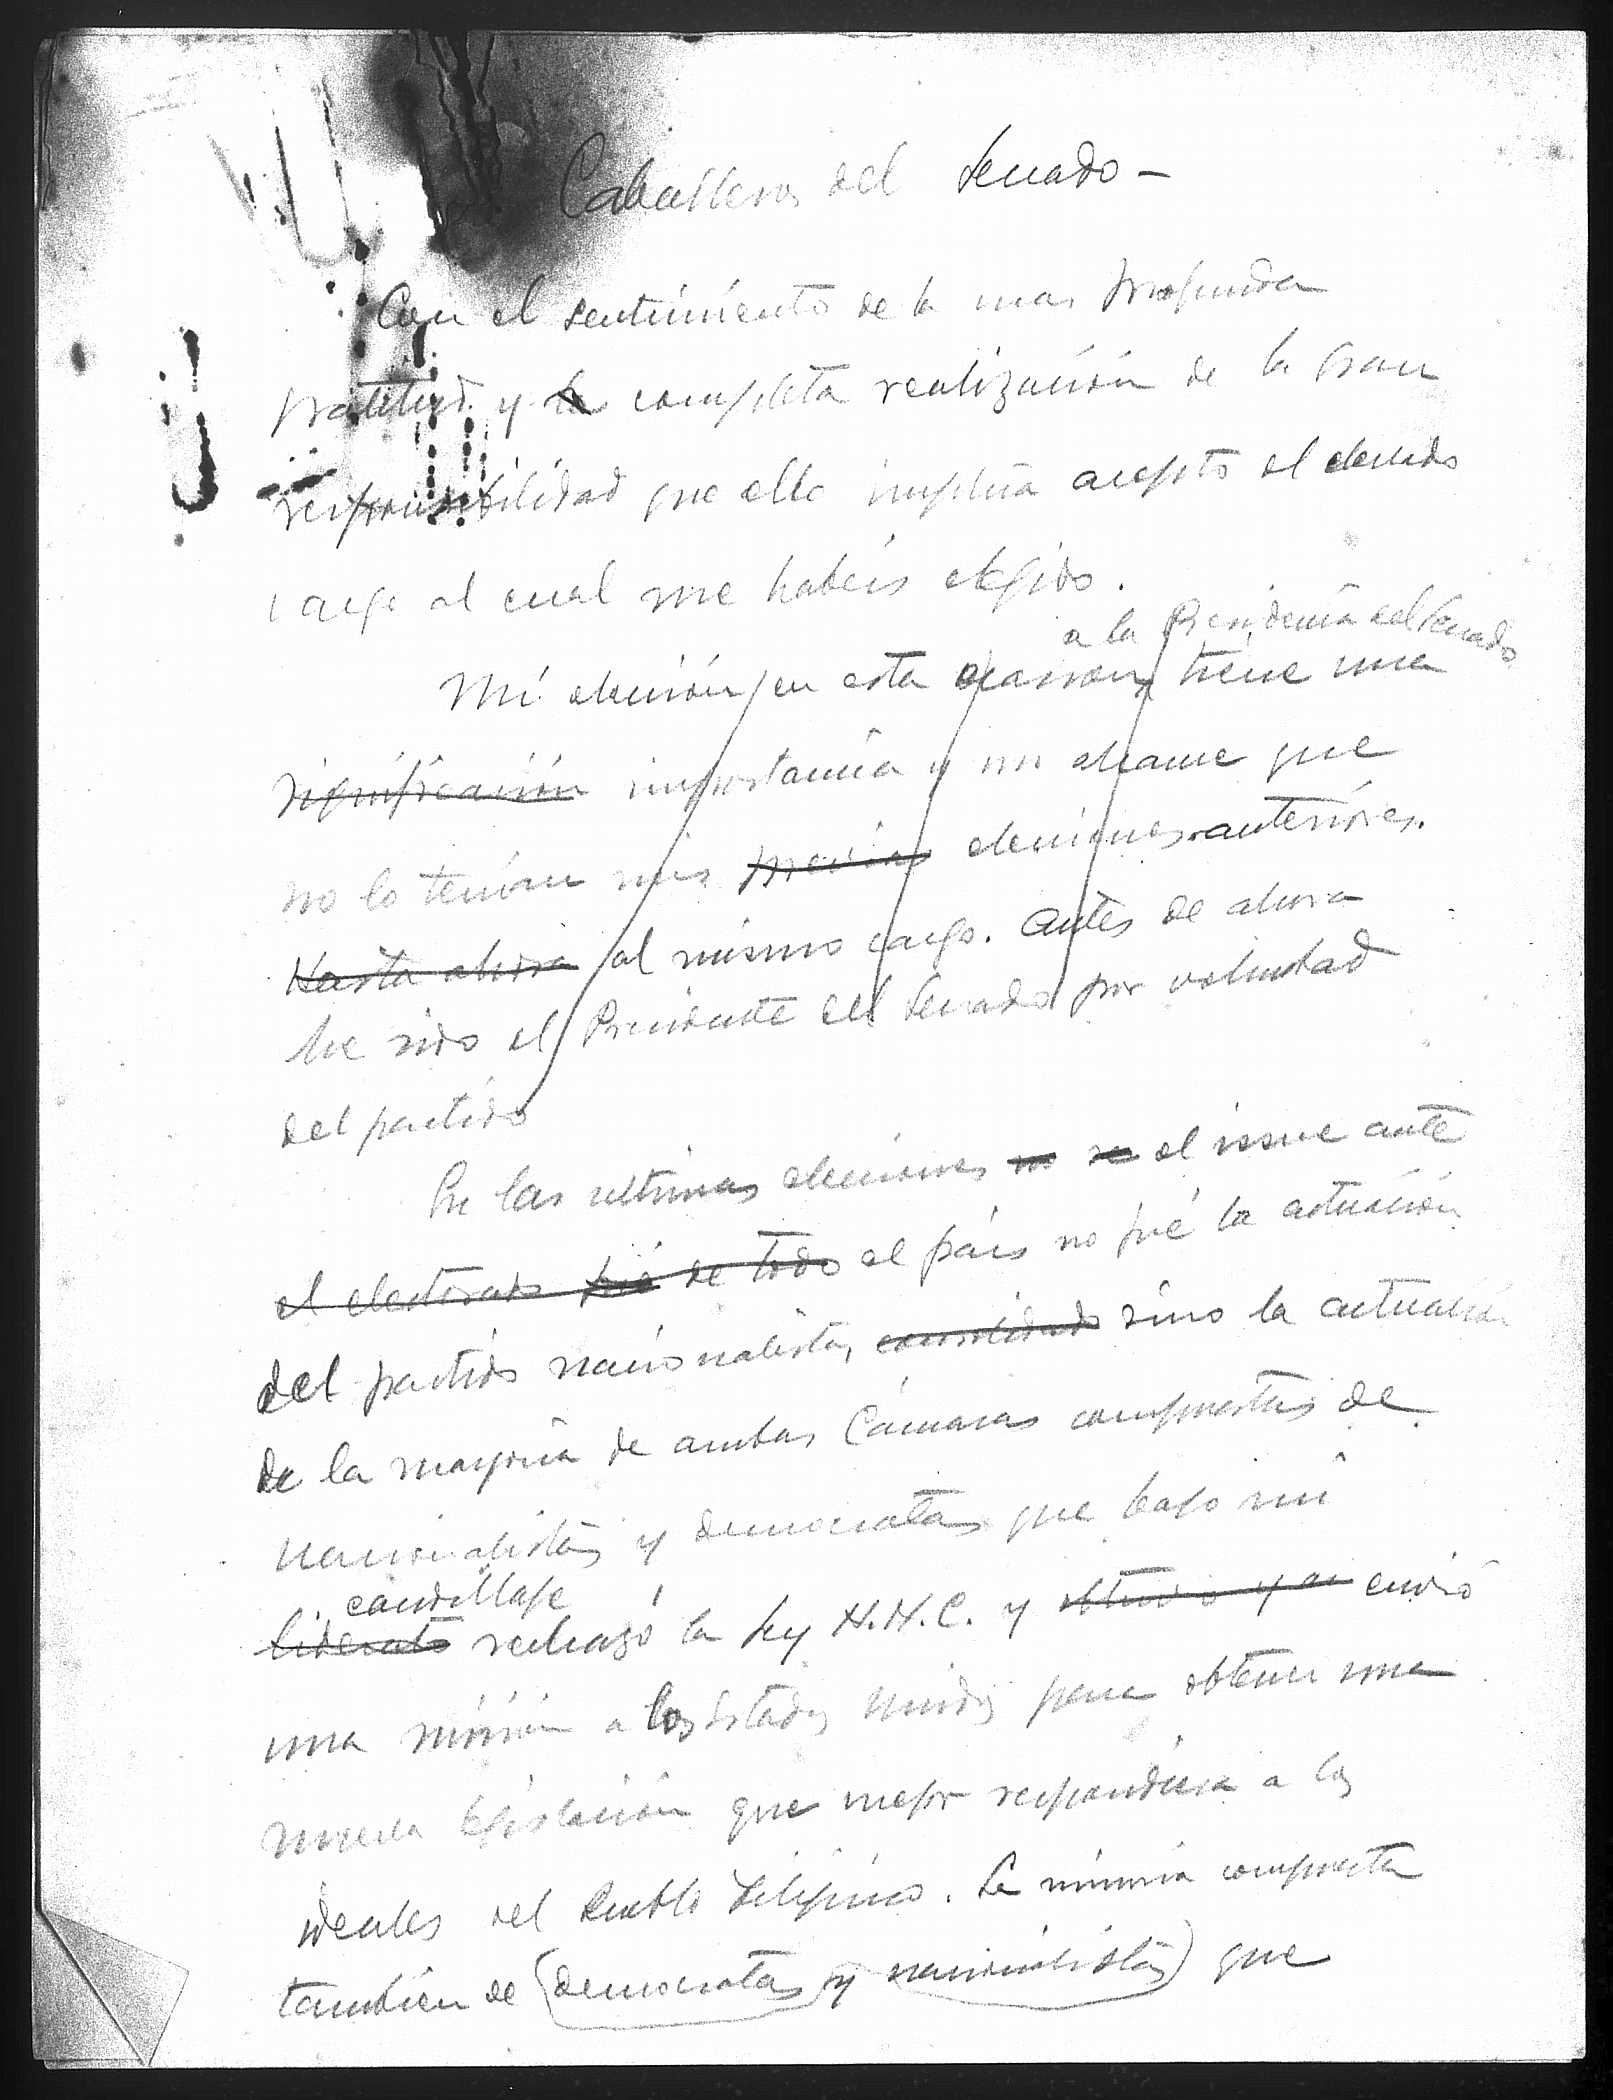 Caballeros del Senado —
Con el sentimiento de la mas profunda
gratitud y la completa realización de la gran
responsabilidad que ello implica acepto el elevado
cargo al cual me habéis elegido.
a la Presidencia del Senado
Mi elección en esta ocasion tiene una
significación importancia y un alcance que
no lo tenían mis previas elecciones anteriores.
Hasta ahora al mismo cargo. Antes de ahora
he sido el Presidente del Senado por voluntad
del partido
En las ultimas elecciones no se el issue ante
el electorado fué de todo el país no fué la actuación
del partido nacionalista, consolidado sino la actuación
de la mayoría de ambas Cámaras compuestas de
nacionalistas y democratas que bajo mi
caudillaje
liderato rechazó la Ley H.H.C. y obtuvo y a envió
una misión a los Estados Unidos para obtener una
nueva legislación que mejor respondiera a los
ideales del Pueblo Filipino. La minoría compuesta
también de (democratas y nacionalistas) que